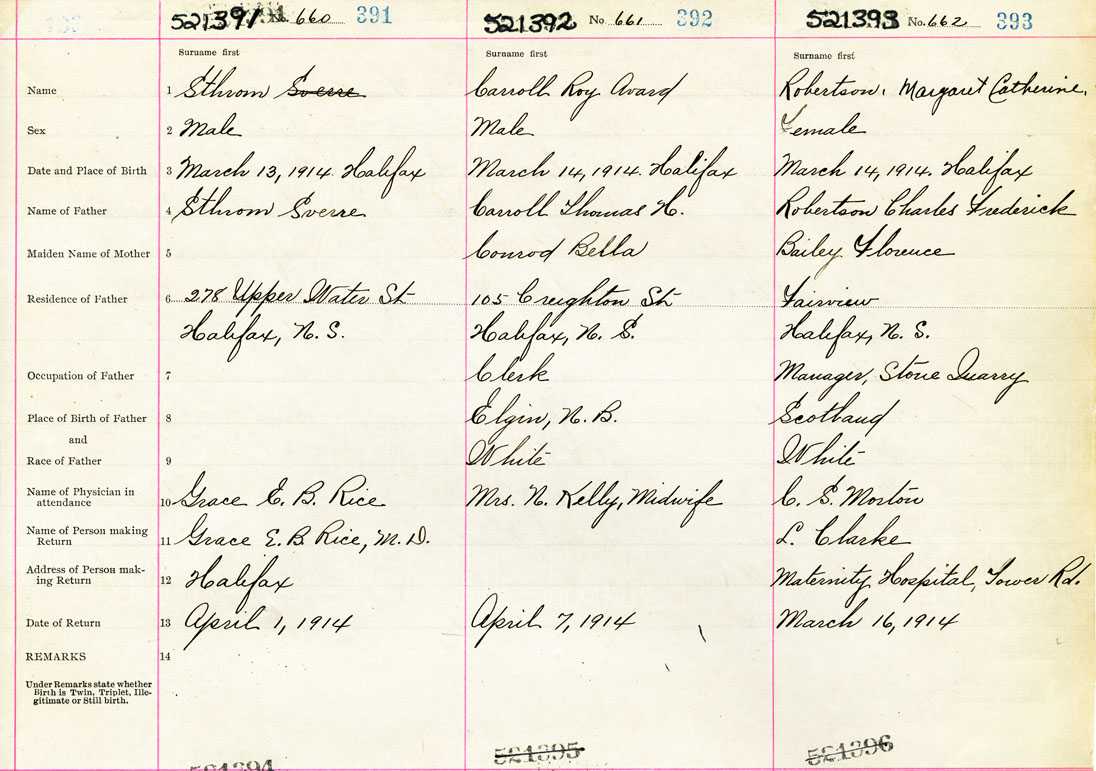 521391 No. 660 391 521392 No. 661 392 521393 No. 662 393
Surname first Surname first Surname first
Name 1 Sthrom Sverre Carroll Roy Avard Robertson, Margaret Catherine.
Sex 2 Male Male Female
Date and Place of Birth 3 March 13, 1914. Halifax March 14, 1914. Halifax March 14, 1914. Halifax
Name of Father 4 Sthrom Sverre Carroll Thomas H. Robertson Charles Frederick
Maiden Name of Mother 5 Conrod Bella Bailey Florence
Residence of Father 6 278 Upper Water St 105 Creighton St Fairview
Halifax, N. S. Halifax, N. S. Halifax, N. S.
Occupation of Father 7 Clerk Manager, Stone Quarry
Place of Birth of Father 8 Elgin, N. B. Scotland
and
Race of Father 9 White White
Name of Physician in
attendance 10 Grace E. B. Rice Mrs. N. Kelly, Midwife C. S. Morton
Name of Person making
Return 11 Grace E. B. Rice, M.D. L. Clarke
Address of Person mak-
ing Return 12 Halifax Maternity Hospital, Tower Rd.
Date of Return 13 April 1, 1914 April 7, 1914 March 16, 1914
REMARKS 14
Under Remarks state whether
Birth is Twin, Triplet, Ille-
gitimate or Still birth.
521394 521395 521396